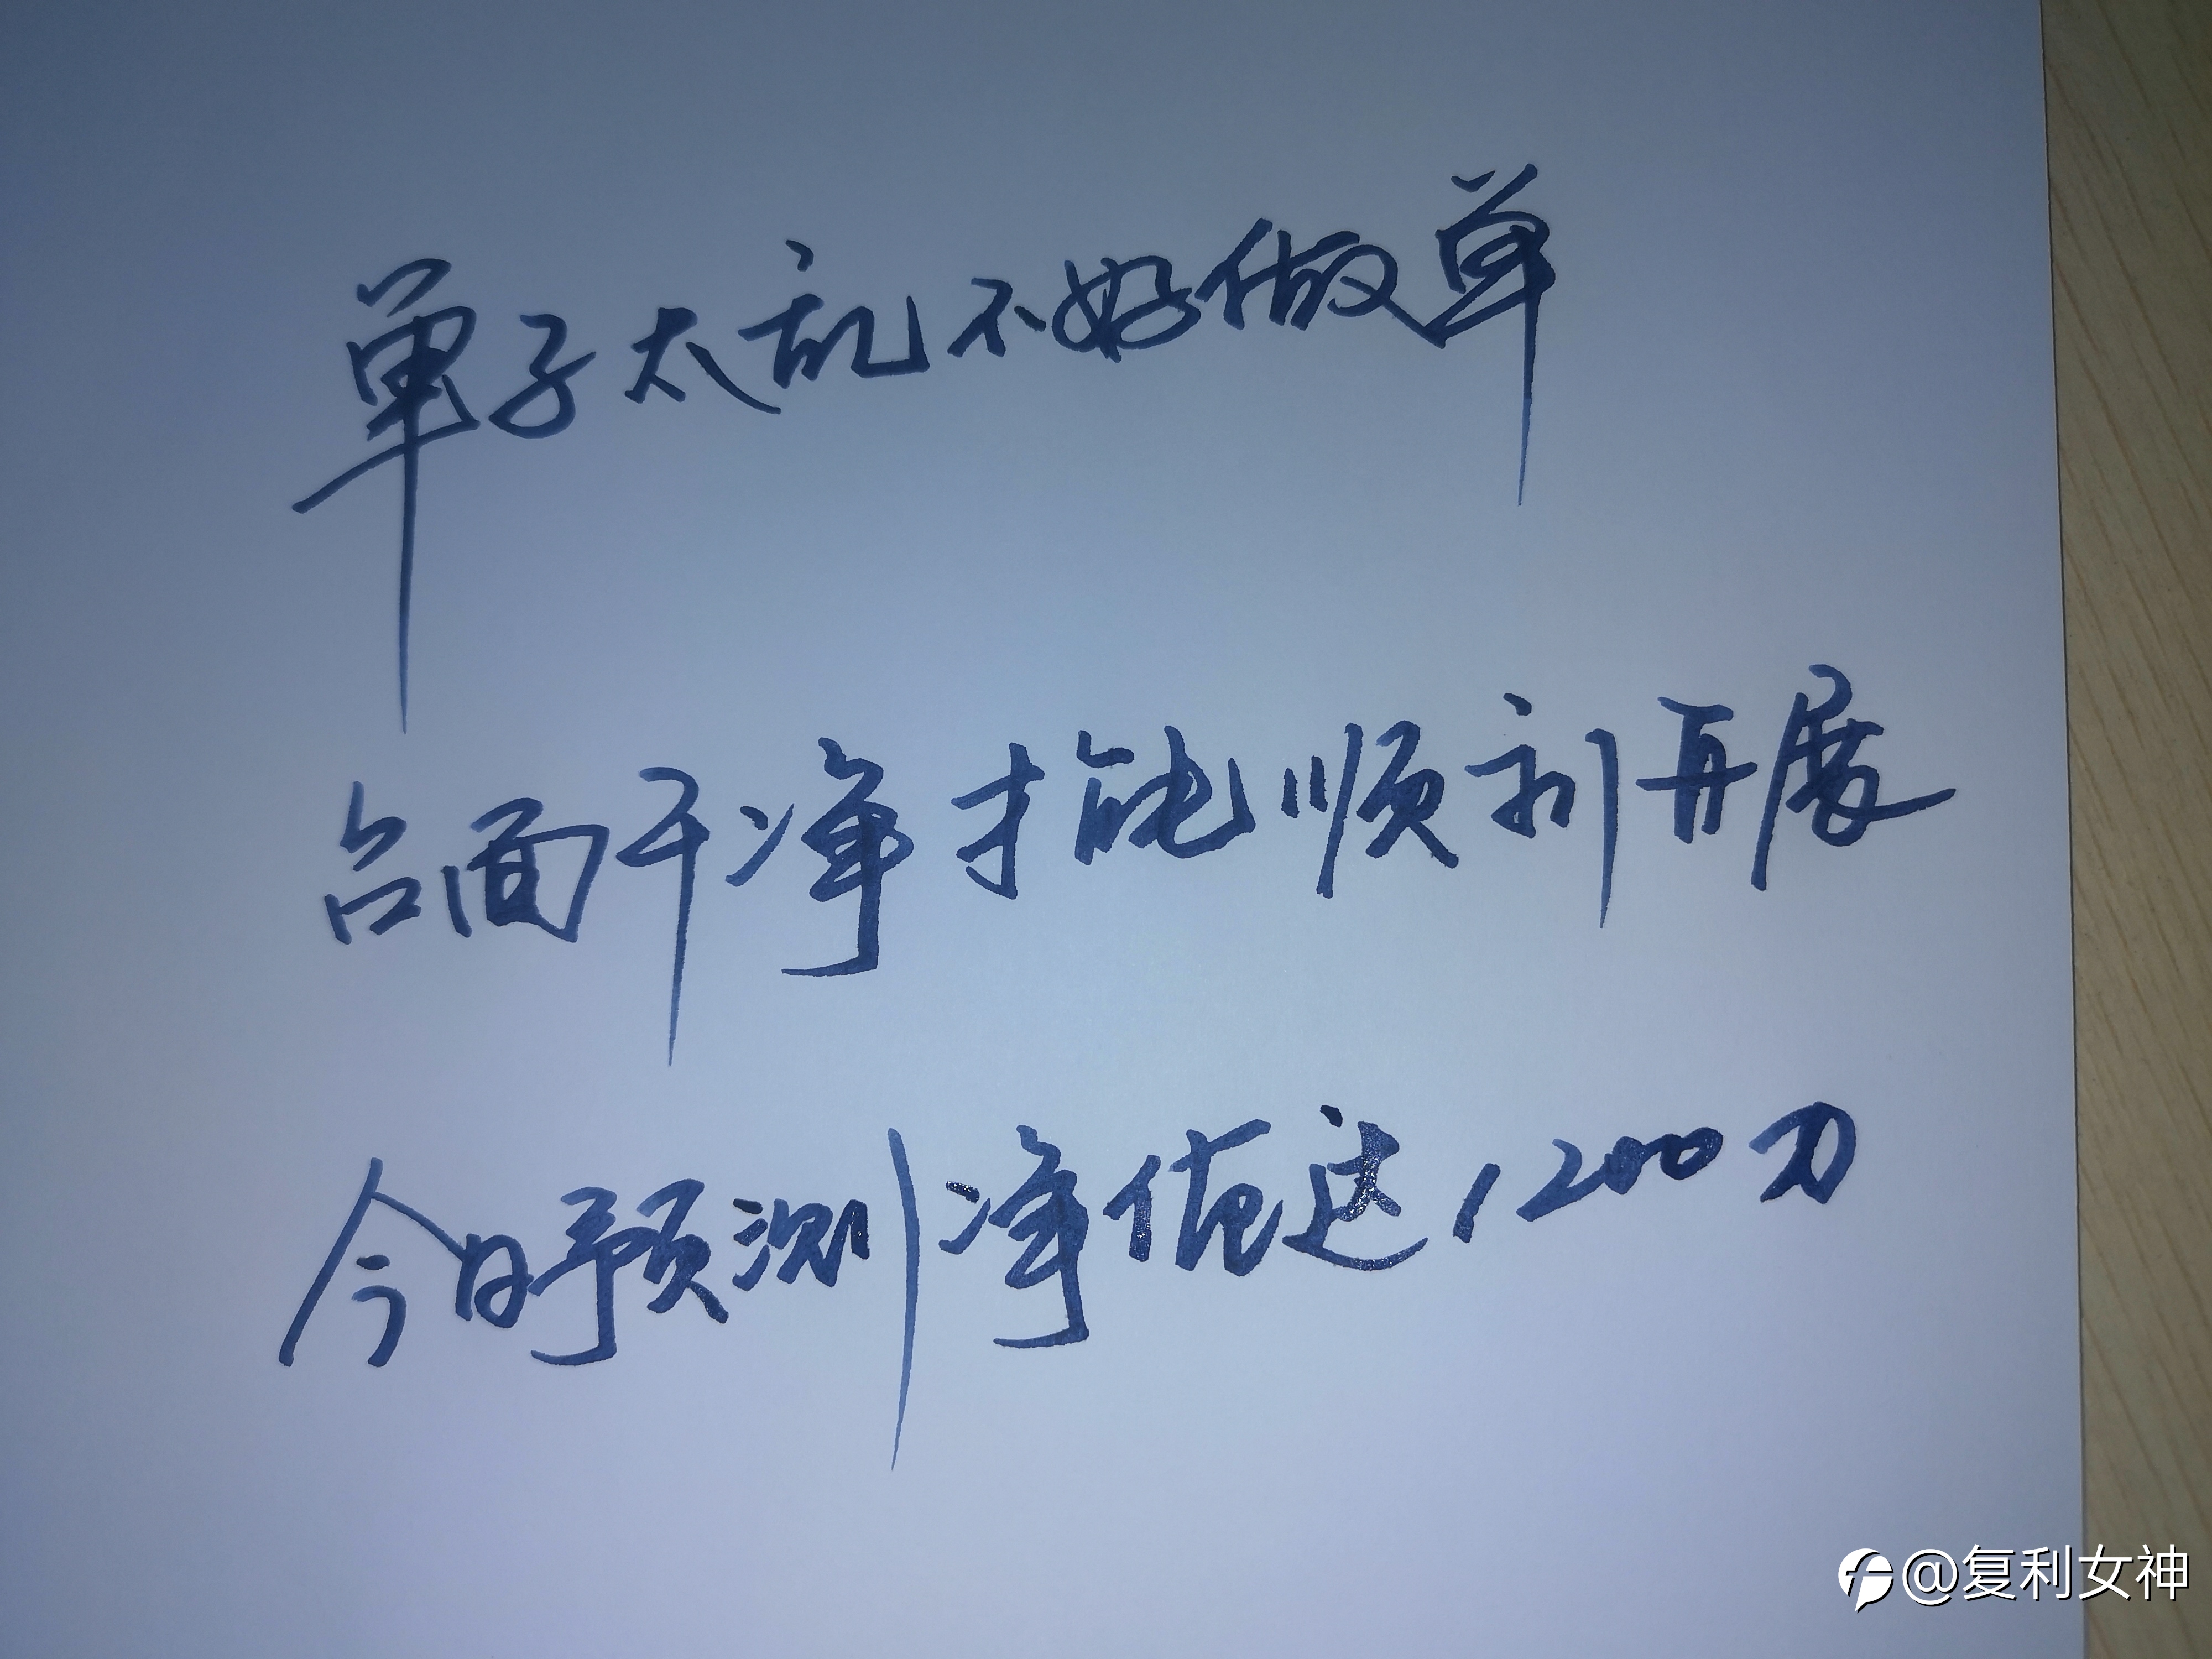 单子太乱不好做单
台面干净才能顺利开展
今日预测净值达1200刀
@复利女神